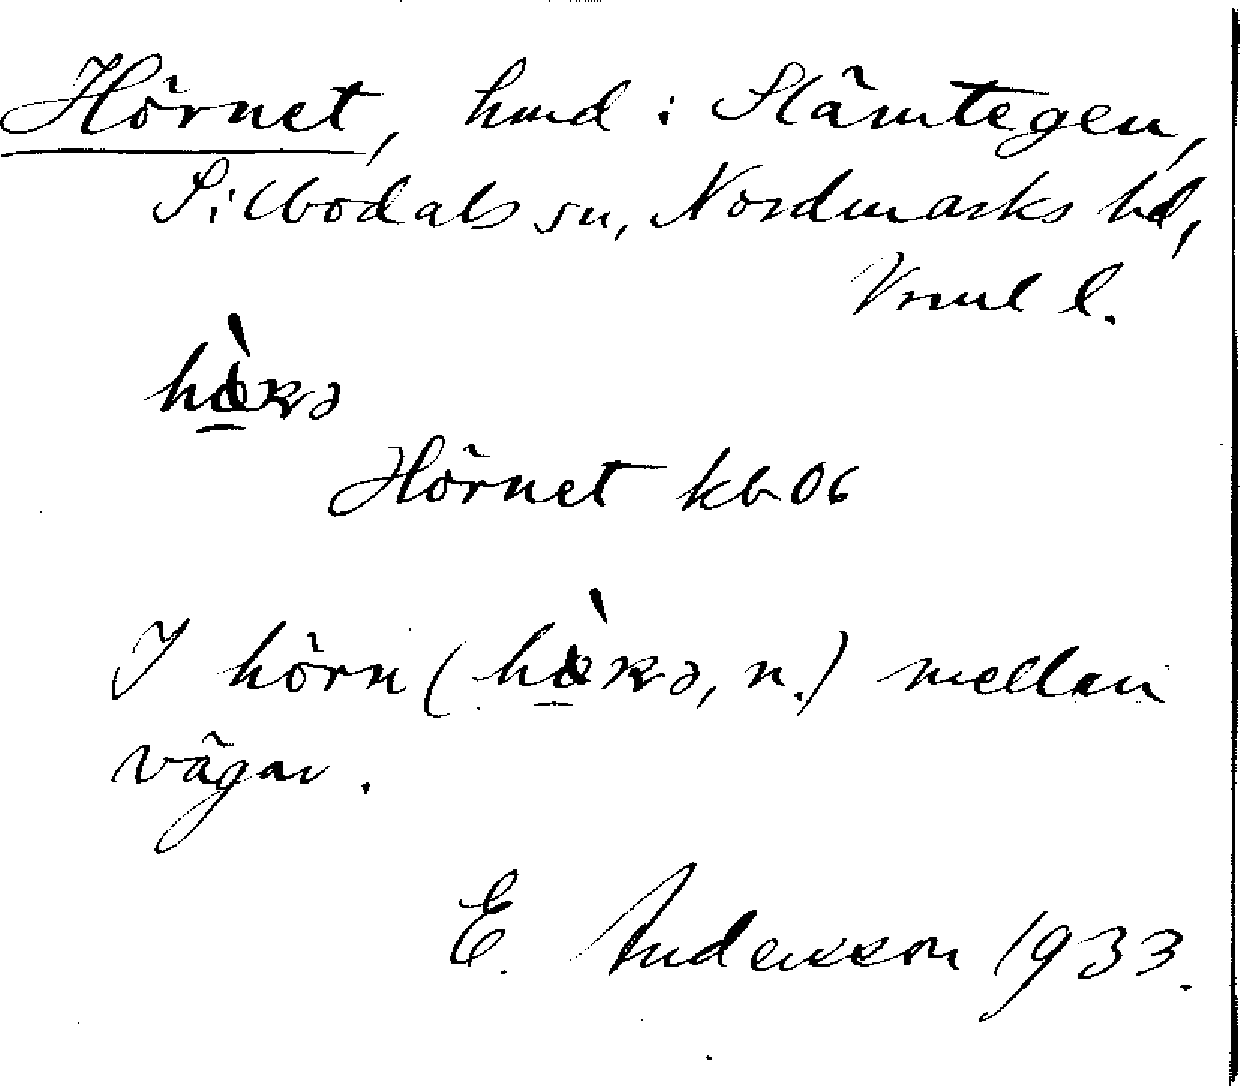 Hörnet, hmd i Slämtegen,
Silbodals sn, Nordmarks hd,
Vrml l.
Hörnet kb 06
I hörn ( , n.) mellan
vägar.
E. Andersson 1933.